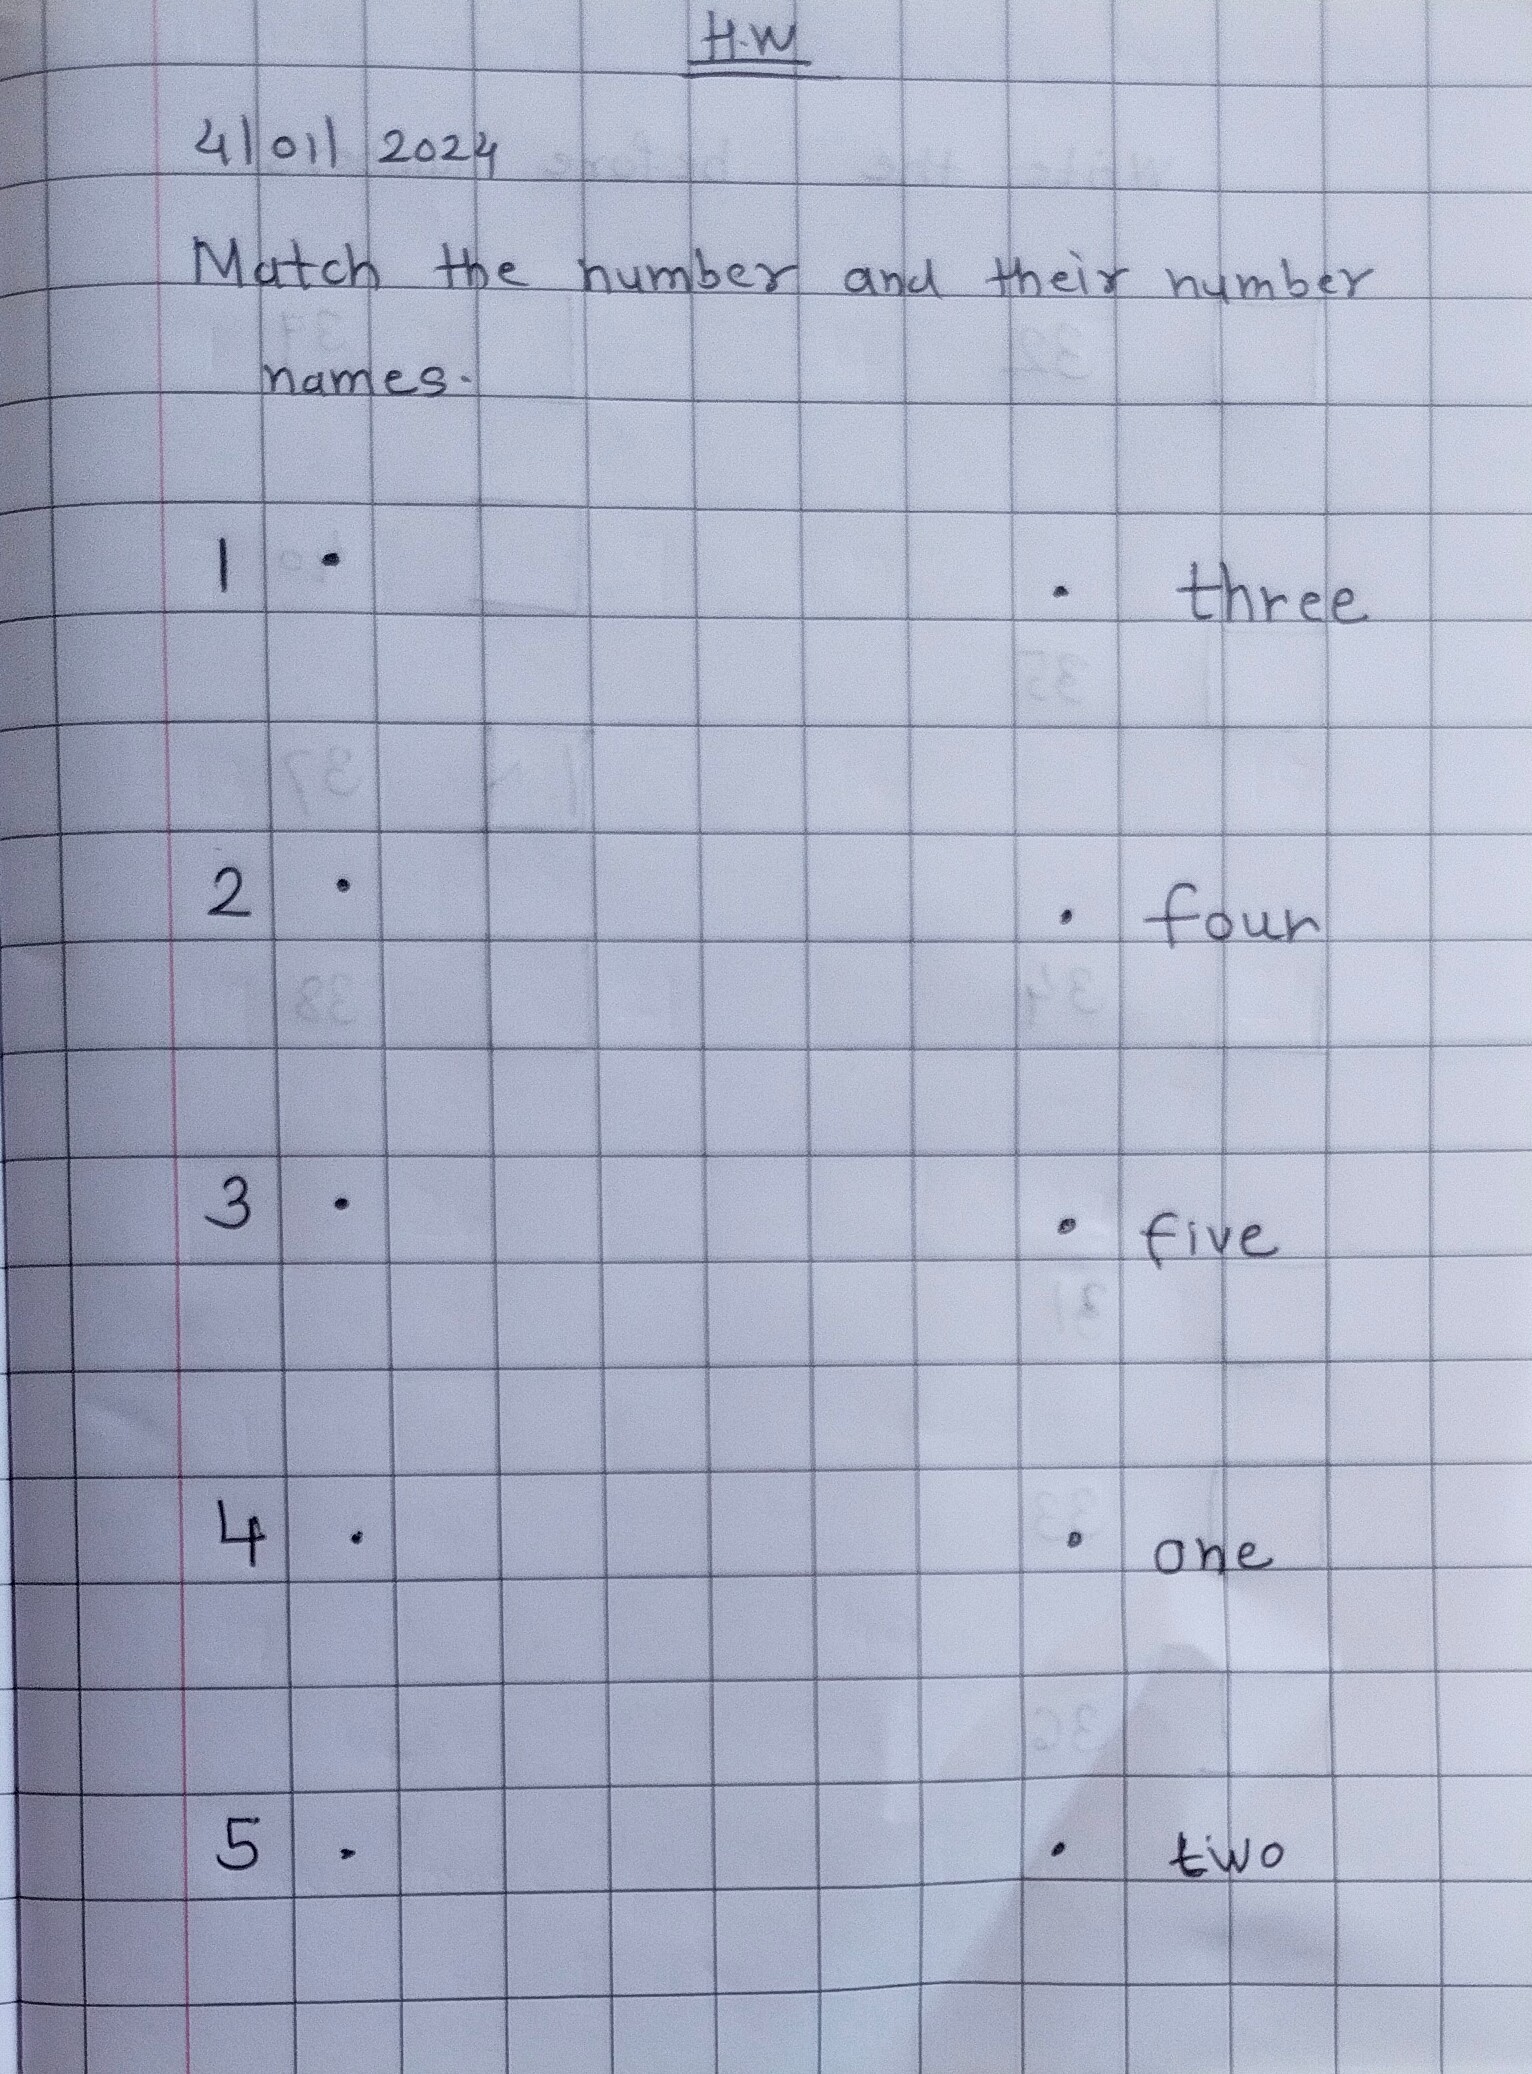 H.W
4/01/2024
Match the number and their number
names.
1 . . three
2 . . four
3 . . five
4 . . one
5 . . two